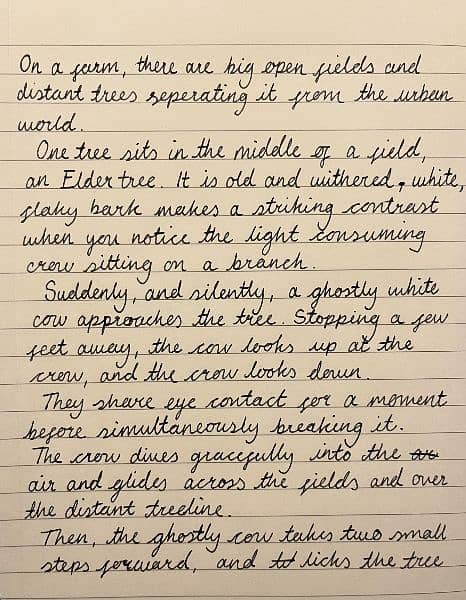 On a farm, there are big open fields and
distant trees seperating it from the urban
world.
One tree sits in the middle of a field,
an Elder tree. It is old and withered, white,
flaky bark makes a striking contrast
when you notice the light consuming
crow sitting on a branch.
Suddenly, and silently, a ghostly white
cow approaches the tree. Stopping a few
feet away, the cow looks up at the
crow, and the crow looks down.
They share eye contact for a moment
before simultaneously breaking it.
The crow dives gracefully into the
air and glides across the fields and over
the distant treeline.
Then, the ghostly cow takes two small
steps forward, and licks the tree